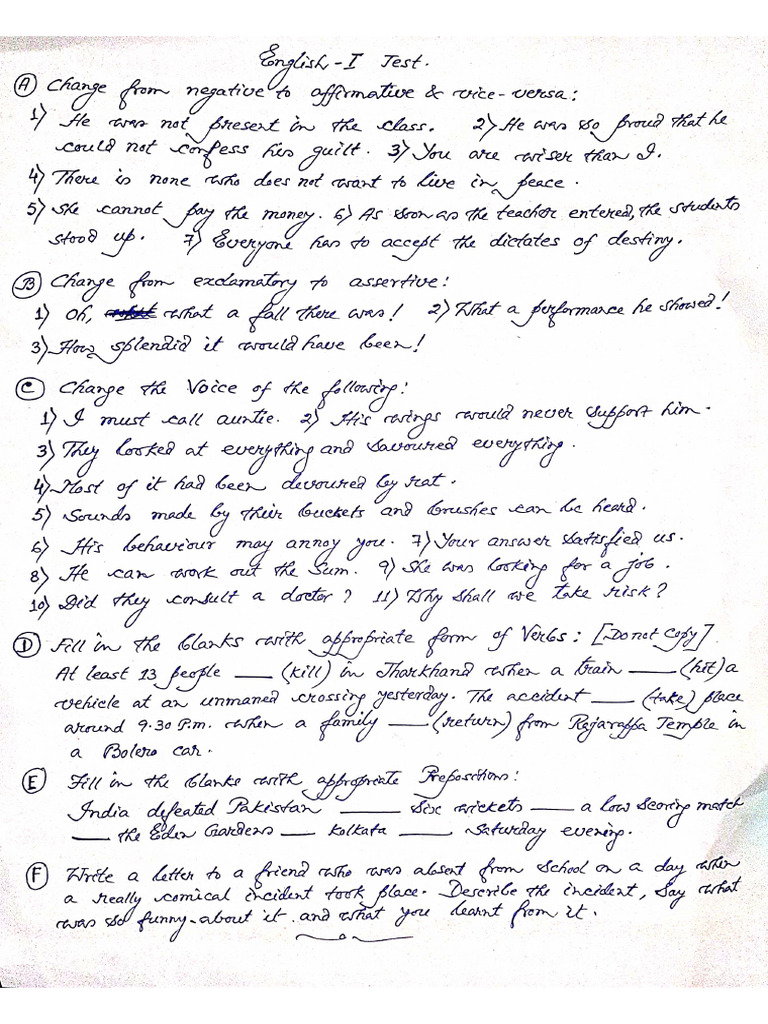 English - I Test.
(A) Change from negative to affirmative & vice-versa:
1) He was not present in the class. 2) He was so proud that he
could not confess his guilt. 3) You are wiser than I.
4) There is none who does not want to live in peace.
5) She cannot pay the money. 6) As soon as the teacher entered, the students
stood up. 7) Everyone has to accept the dictates of destiny.
(B) Change from exclamatory to assertive:
1) Oh, what a fall there was! 2) What a performance he showed!
3) How splendid it would have been!
(C) Change the Voice of the following:
1) I must call auntie. 2) His wings would never support him.
3) They looked at everything and savoured everything.
4) Most of it had been devoured by rat.
5) Sounds made by their buckets and brushes can be heard.
6) His behaviour may annoy you. 7) Your answer satisfied us.
8) He can work out the Sum. 9) She was looking for a job.
10) Did they consult a doctor? 11) Why shall we take risk?
(D) Fill in the blanks with appropriate form of Verbs: [Do not Copy]
At least 13 people ___ (kill) in Jharkhand when a train ___ (hit) a
vehicle at an unmaned crossing yesterday. The accident ___ (take) place
around 9.30 P.m. when a family ___ (return) from Rajarappa Temple in
a Bolero car.
(E) Fill in the blanks with appropriate Prepositions:
India defeated Pakistan ___ Six wickets ___ a low scoring match
___ the Eden Gardens ___ Kolkata ___ Saturday evening.
(F) Write a letter to a friend who was absent from School on a day when
a really comical incident took place. Describe the incident, Say what
was so funny about it. and what you learnt from it.